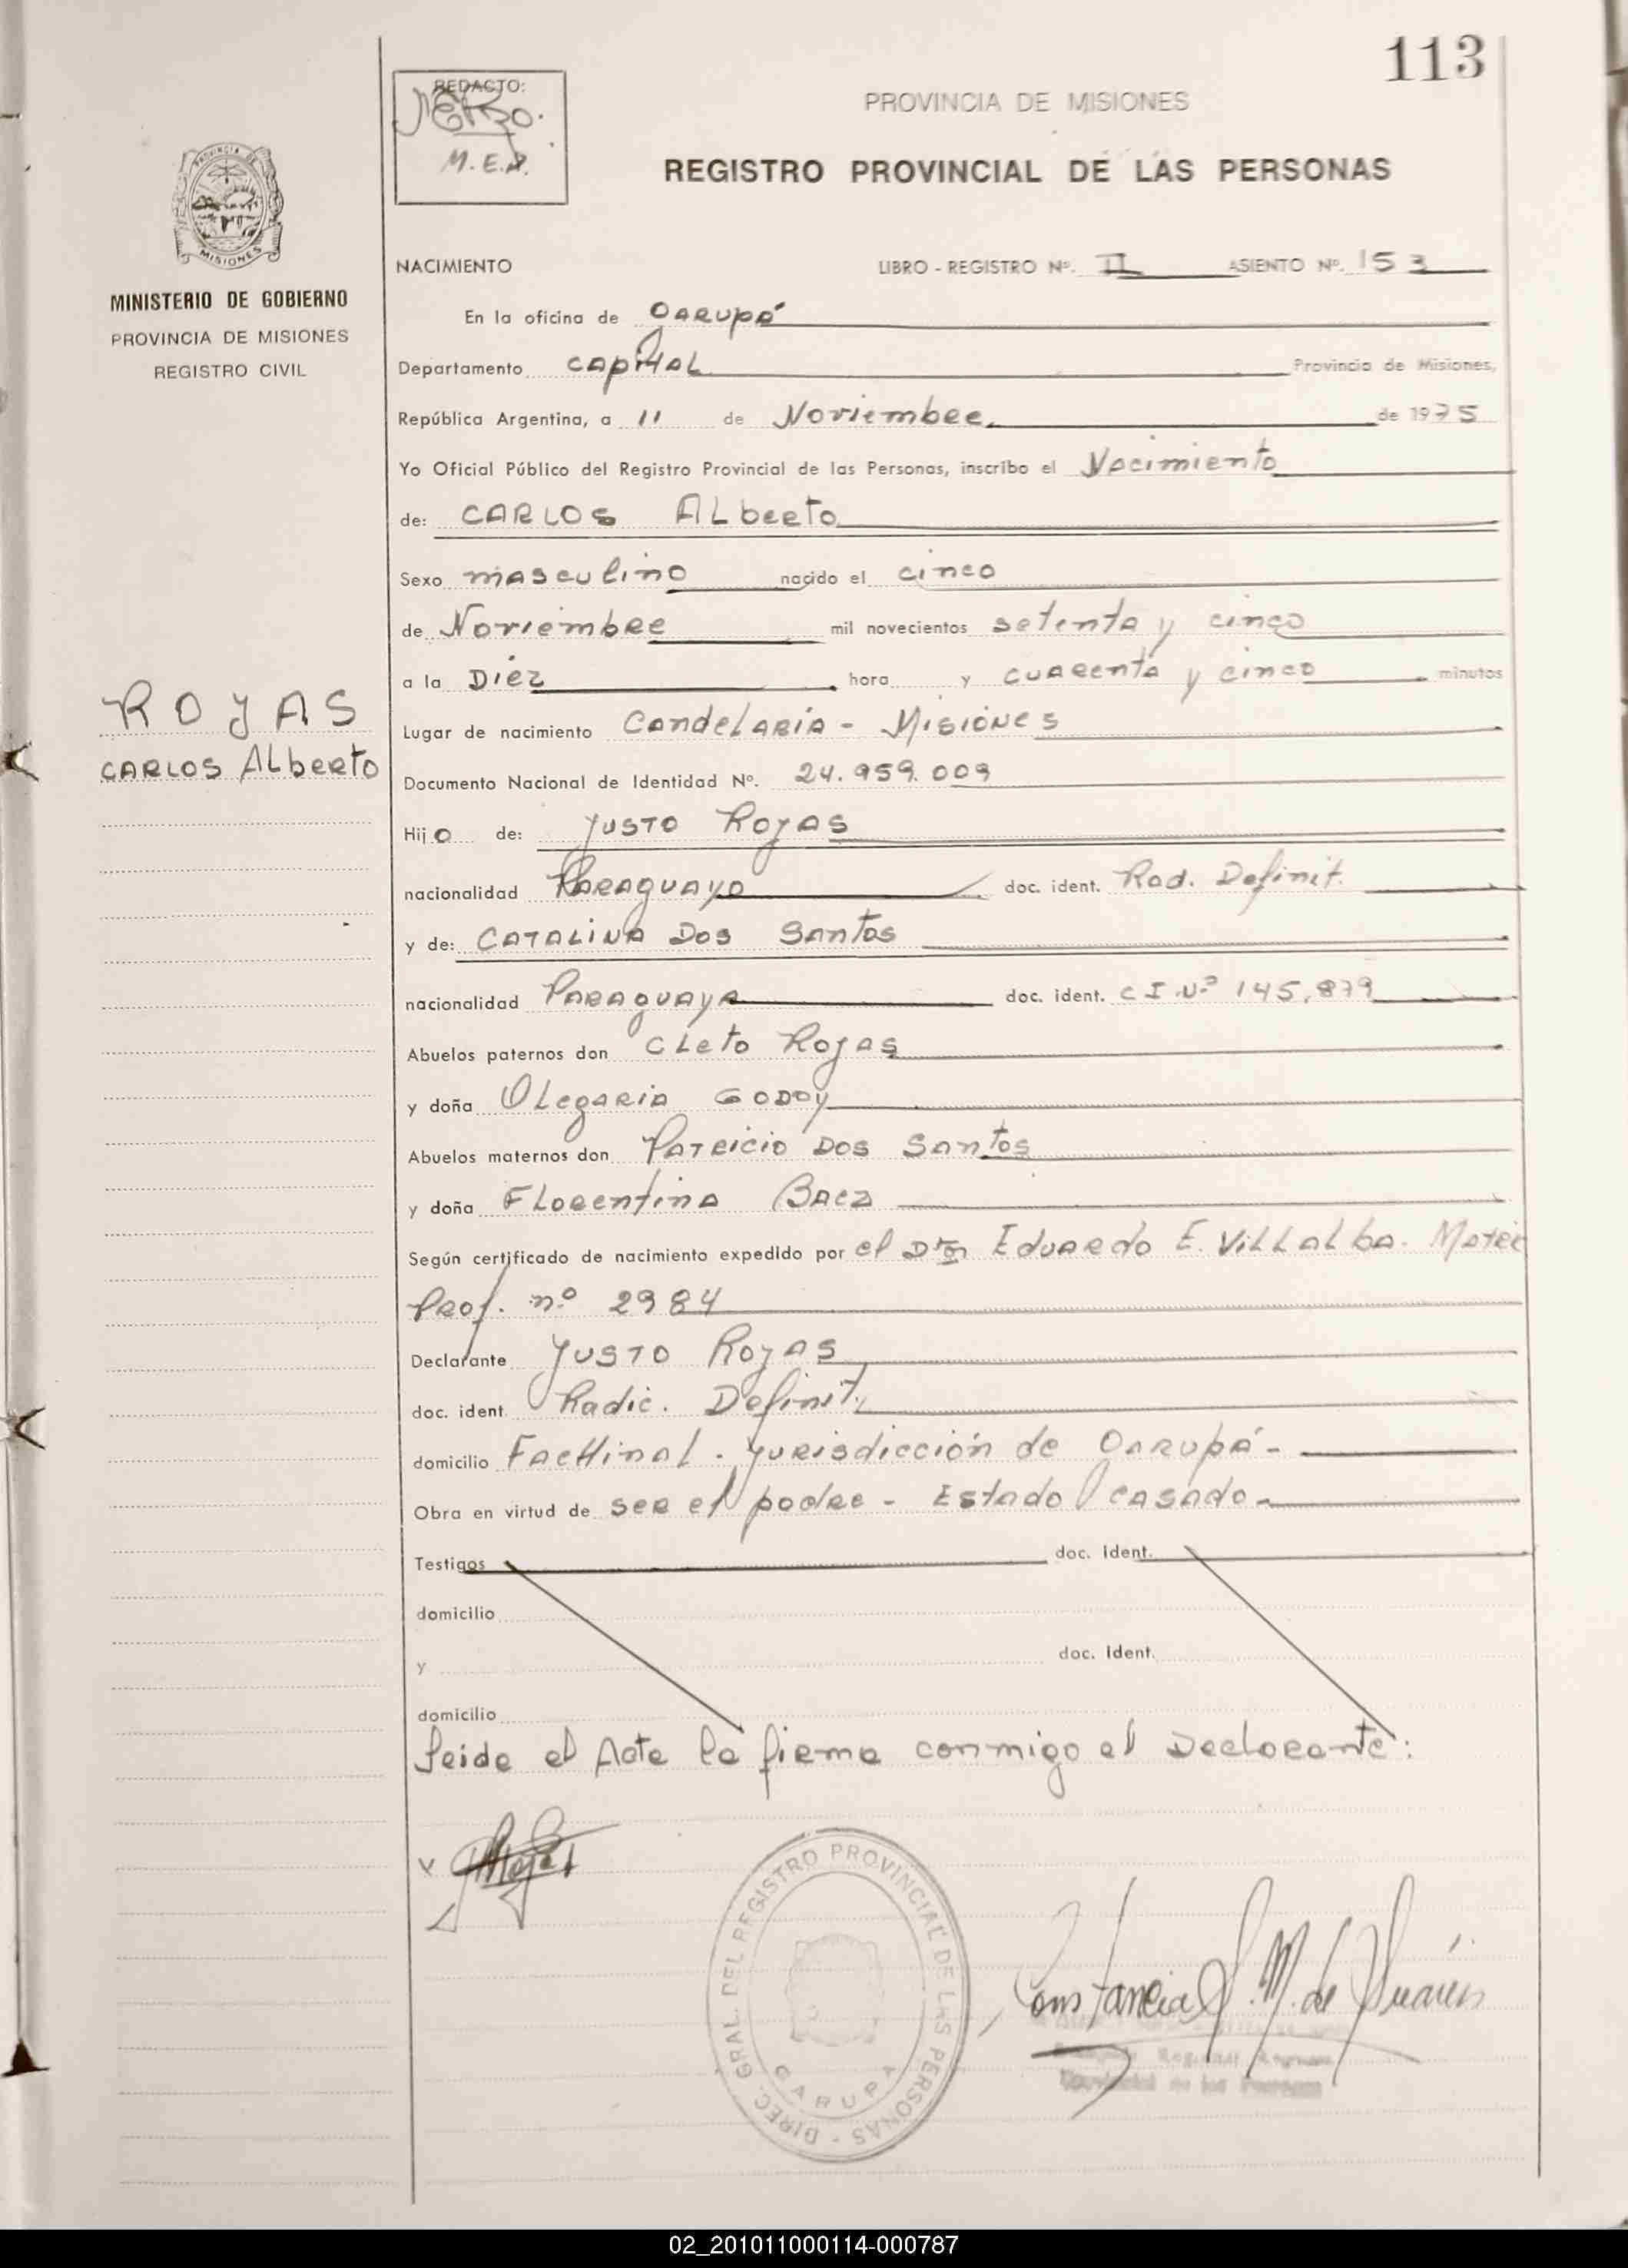 113
REDACTO:
M.E.
PROVINCIA DE MISIONES
REGISTRO PROVINCIAL DE LAS PERSONAS
MISIONES
MINISTERIO DE GOBIERNO
PROVINCIA DE MISIONES
REGISTRO CIVIL
ROJAS
CARLOS Alberto
NACIMIENTO LIBRO - REGISTRO Nº. II ASIENTO Nº. 153
En la oficina de GARUPÁ
Departamento CAPITAL Provincia de Misiones,
República Argentina, a 11 de Noviembre de 1975
Yo Oficial Público del Registro Provincial de las Personas, inscribo el Nacimiento
de: CARLOS ALberto
Sexo masculino nacido el cinco
de Noviembre mil novecientos setenta y cinco
a la Diez hora y cuarenta y cinco minutos
Lugar de nacimiento Candelaria - Misiones
Documento Nacional de Identidad Nº. 24.959.009
Hijo de: Justo Rojas
nacionalidad Paraguayo doc. ident. Rad. Definit.
y de: CATALINA Dos Santos
nacionalidad Paraguaya doc. ident. C I Nº 145,879
Abuelos paternos don Cleto Rojas
y doña Olegaria GODOY
Abuelos maternos don Patricio Dos Santos
y doña Florentina Baez
Según certificado de nacimiento expedido por el Dr. Eduardo E. Villalba. Matri
Prof. nº 2984
Declarante Justo Rojas
doc. ident. Radic. Definit.
domicilio Fachinal. Jurisdicción de Garupá-
Obra en virtud de ser el padre - Estado casado-
Testigos doc. ident.
domicilio
y doc. ident.
domicilio
Leida el Acta la firma conmigo el Declarante:
DIREC. GRAL. DEL REGISTRO PROVINCIAL DE LAS PERSONAS -
GARUPA
Constancia M. de
02_201011000114-000787